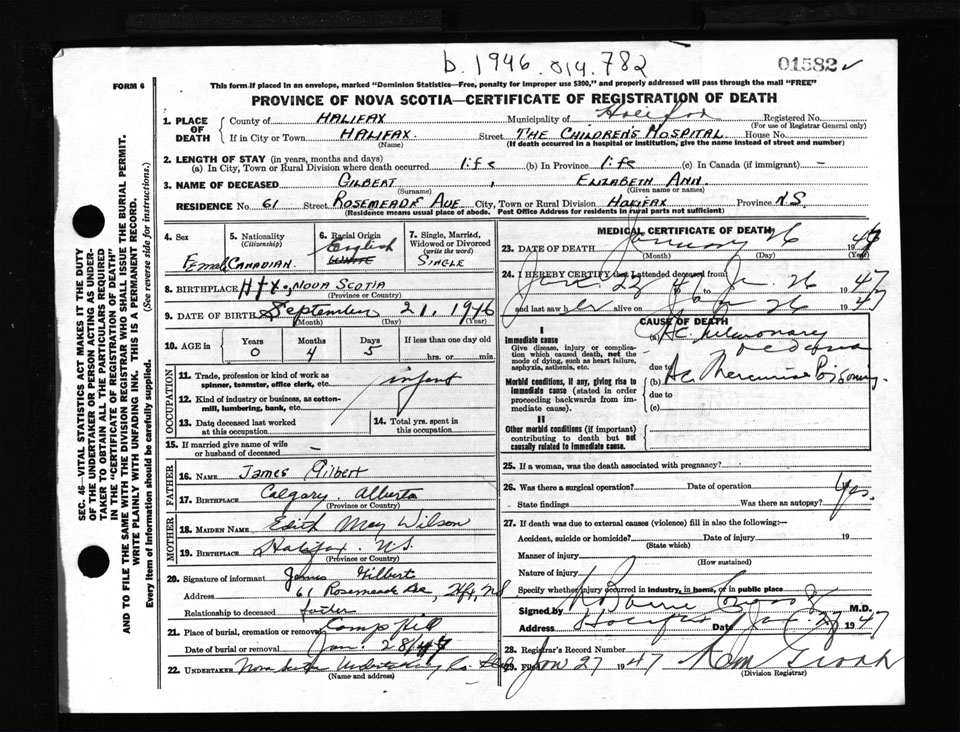 b. 1946. 014.782
01582
FORM 6
This form if placed in an envelope, marked "Dominion Statistics—Free, penalty for improper use $300," and properly addressed will pass through the mail "FREE"
PROVINCE OF NOVA SCOTIA—CERTIFICATE OF REGISTRATION OF DEATH
SEC. 46—VITAL STATISTICS ACT MAKES IT THE DUTY
OF THE UNDERTAKER OR PERSON ACTING AS UNDER-
TAKER TO OBTAIN ALL THE PARTICULARS REQUIRED
IN THE "CERTIFICATE OF REGISTRATION OF DEATH"
AND TO FILE THE SAME WITH THE DIVISION REGISTRAR WHO SHALL ISSUE THE BURIAL PERMIT.
WRITE PLAINLY WITH UNFADING INK. THIS IS A PERMANENT RECORD.
Every item of information should be carefully supplied. (See reverse side for instructions.)
1. PLACE OF DEATH
County of HALIFAX Municipality of Halifax Registered No.
(For use of Registrar General only)
If in City or Town HALIFAX. Street THE CHILDREN'S HOSPITAL House No.
(Name) (If death occurred in a hospital or institution, give the name instead of street and number)
2. LENGTH OF STAY (in years, months and days)
(a) In City, Town or Rural Division where death occurred life (b) In Province life (c) In Canada (if immigrant) -
3. NAME OF DECEASED GILBERT, ELIZABETH ANN.
(Surname) (Given name or names)
RESIDENCE No. 61 Street ROSEMEADE AVE City, Town or Rural Division HALIFAX Province N.S.
(Residence means usual place of abode. Post Office Address for residents in rural parts not sufficient)
4. Sex
Female
5. Nationality
(Citizenship)
CANADIAN.
6. Racial Origin
English
WHITE
7. Single, Married, Widowed or Divorced
(write the word)
SINGLE
8. BIRTHPLACE Hfx, NOVA SCOTIA
(Province or Country)
9. DATE OF BIRTH September 21, 1946
(Month) (Day) (Year)
10. AGE in Years Months Days If less than one day old
0 4 5 hrs. or min.
OCCUPATION
11. Trade, profession or kind of work as
spinner, teamster, office clerk, etc. infant
12. Kind of industry or business, as cotton-
mill, lumbering, bank, etc.
13. Date deceased last worked
at this occupation
14. Total yrs. spent in
this occupation
15. If married give name of wife
or husband of deceased -
FATHER
16. NAME James Gilbert
17. BIRTHPLACE Calgary. Alberta
(Province or Country)
MOTHER
18. MAIDEN NAME Edith May Wilson
19. BIRTHPLACE Halifax. N.S.
(Province or Country)
20. Signature of informant James Gilbert
Address 61 Rosemeade Ave, Hfx, NS
Relationship to deceased father
21. Place of burial, cremation or removal Camp Hill
Date of burial or removal Jan. 28/47
22. UNDERTAKER Nova Scotia Undertaking Co.
(Name and address)
MEDICAL CERTIFICATE OF DEATH
23. DATE OF DEATH January 26 1947
(Month) (Day) (Year)
24. I HEREBY CERTIFY that I attended deceased from
Jan. 22 47 to Jan. 26 1947
and last saw her alive on Jan 26 1947
CAUSE OF DEATH
I
Immediate cause
Give disease, injury or compli-
cation which caused death, not the
mode of dying, such as heart failure,
asphyxia, asthenia, etc.
(a) Ac. pulmonary
oedema
due to
Morbid conditions, if any, giving rise to
immediate cause (stated in order
proceeding backwards from im-
mediate cause).
(b) Ac. Poisoning
due to
(c)
II
Other morbid conditions (if important)
contributing to death but not
causally related to immediate cause.
25. If a woman, was the death associated with pregnancy?
26. Was there a surgical operation? Date of operation
State findings Was there an autopsy? Yes.
27. If death was due to external causes (violence) fill in also the following:—
Accident, suicide or homicide? Date of injury 19
(State which)
Manner of injury
(How sustained)
Nature of injury
Specify whether injury occurred in industry, in home, or in public place
Signed by M.D.
Address Halifax Date Jan. 27 1947
28. Registrar's Record Number
29. Filed Jan 27 1947
(Division Registrar)